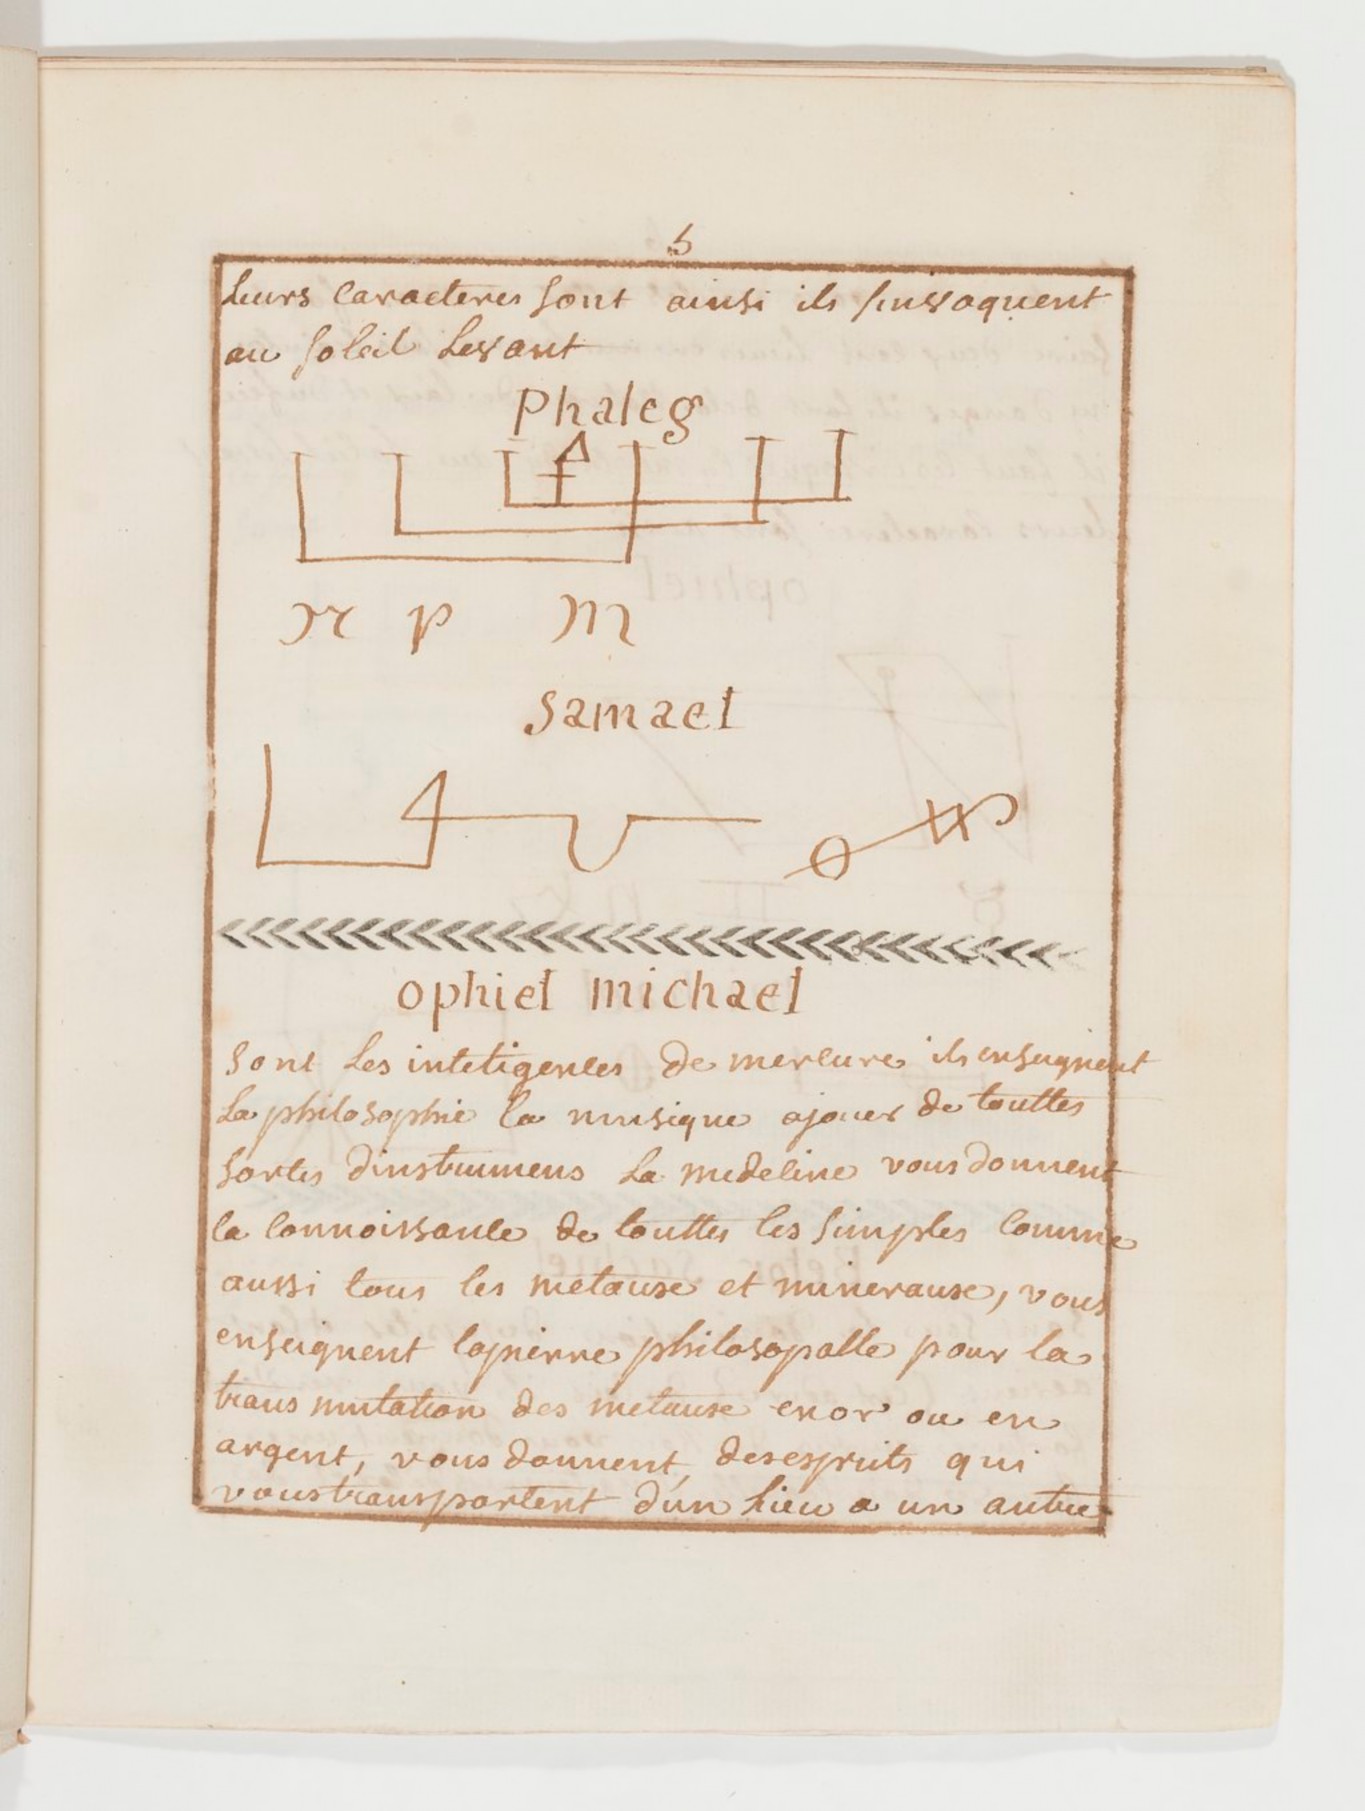 5
Leurs caracteres sont ainsi ils sinvoquent
au soleil Levant
Phaleg
p m
Samael
ophiel michael
sont Les inteligences de mercure ils enseignent
La philosophie la musique ajouer de touttes
sortes dinstrumens La medecine vous donnent
la connoissance de touttes les simples comme
aussi tous les metause et minerause, vous
enseignent lapierre philosopalle pour la
trans mutation des metause enor ou en
argent, vous donnent, desesprits qui
voustransportent d'un Lieu a un autre